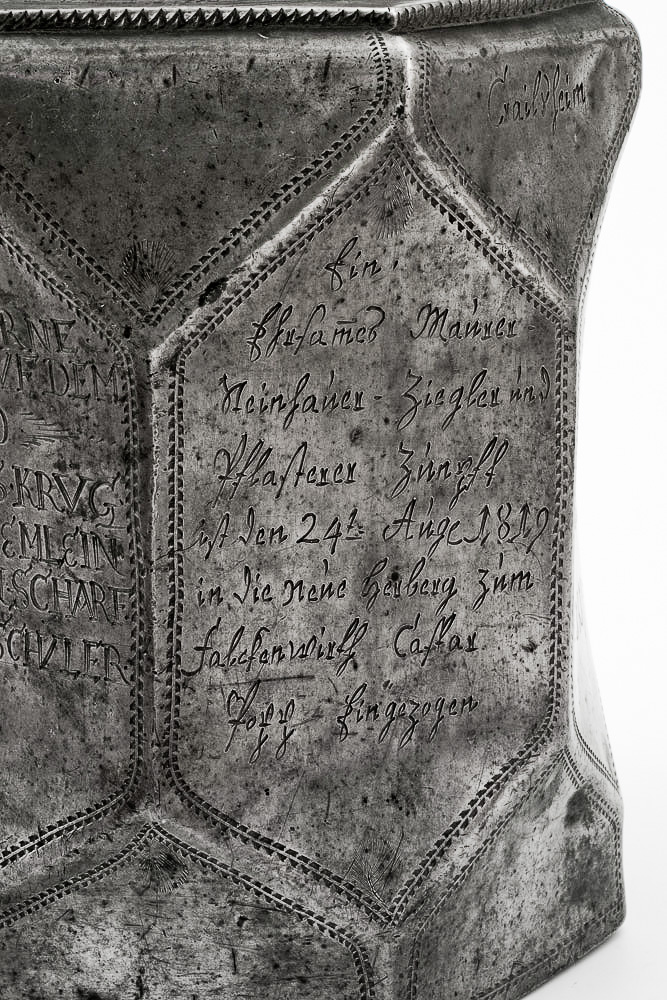 Crailsheim
RNE
VF DEM
KRVG
EMLEIN
SCHARF
SCHVLER
Ein
Ehrsames Maurer
Steinhauer - Ziegler und
Pflasterer Zunfft
ist den 24t: Auge 1819
in die neue Herberg zum
Falckenwirth Caspar
Popp Eingezogen